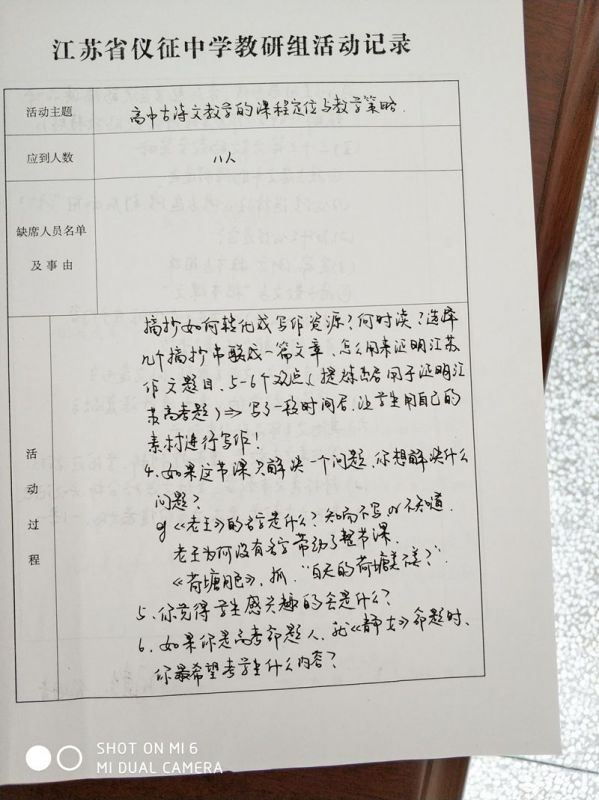 江苏省仪征中学教研组活动记录
活动主题
高中古诗文教学的课程定位与教学策略.
应到人数
八人
缺席人员名单
及事由
活动过程
摘抄如何转化成写作资源?何时读?选择
几个摘抄串联成一篇文章、怎么用来证明江苏
作文题目、5-6个观点(提炼出后用于证明江
苏高考题)⇒ 写了一段时间后,让学生用自己的
素材进行写作!
4、如果这节课只解决一个问题,你想解决什么
问题?
eg《老王》的名字是什么?知而不写 or 不知道.
老王为何没有名字带动了整节课.
《荷塘月色》,抓 "白天的荷塘美不美?"
5、你觉得学生感兴趣的会是什么?
6、如果你是高考命题人,就《静女》命题时、
你最希望考学生什么内容?
SHOT ON MI 6
MI DUAL CAMERA